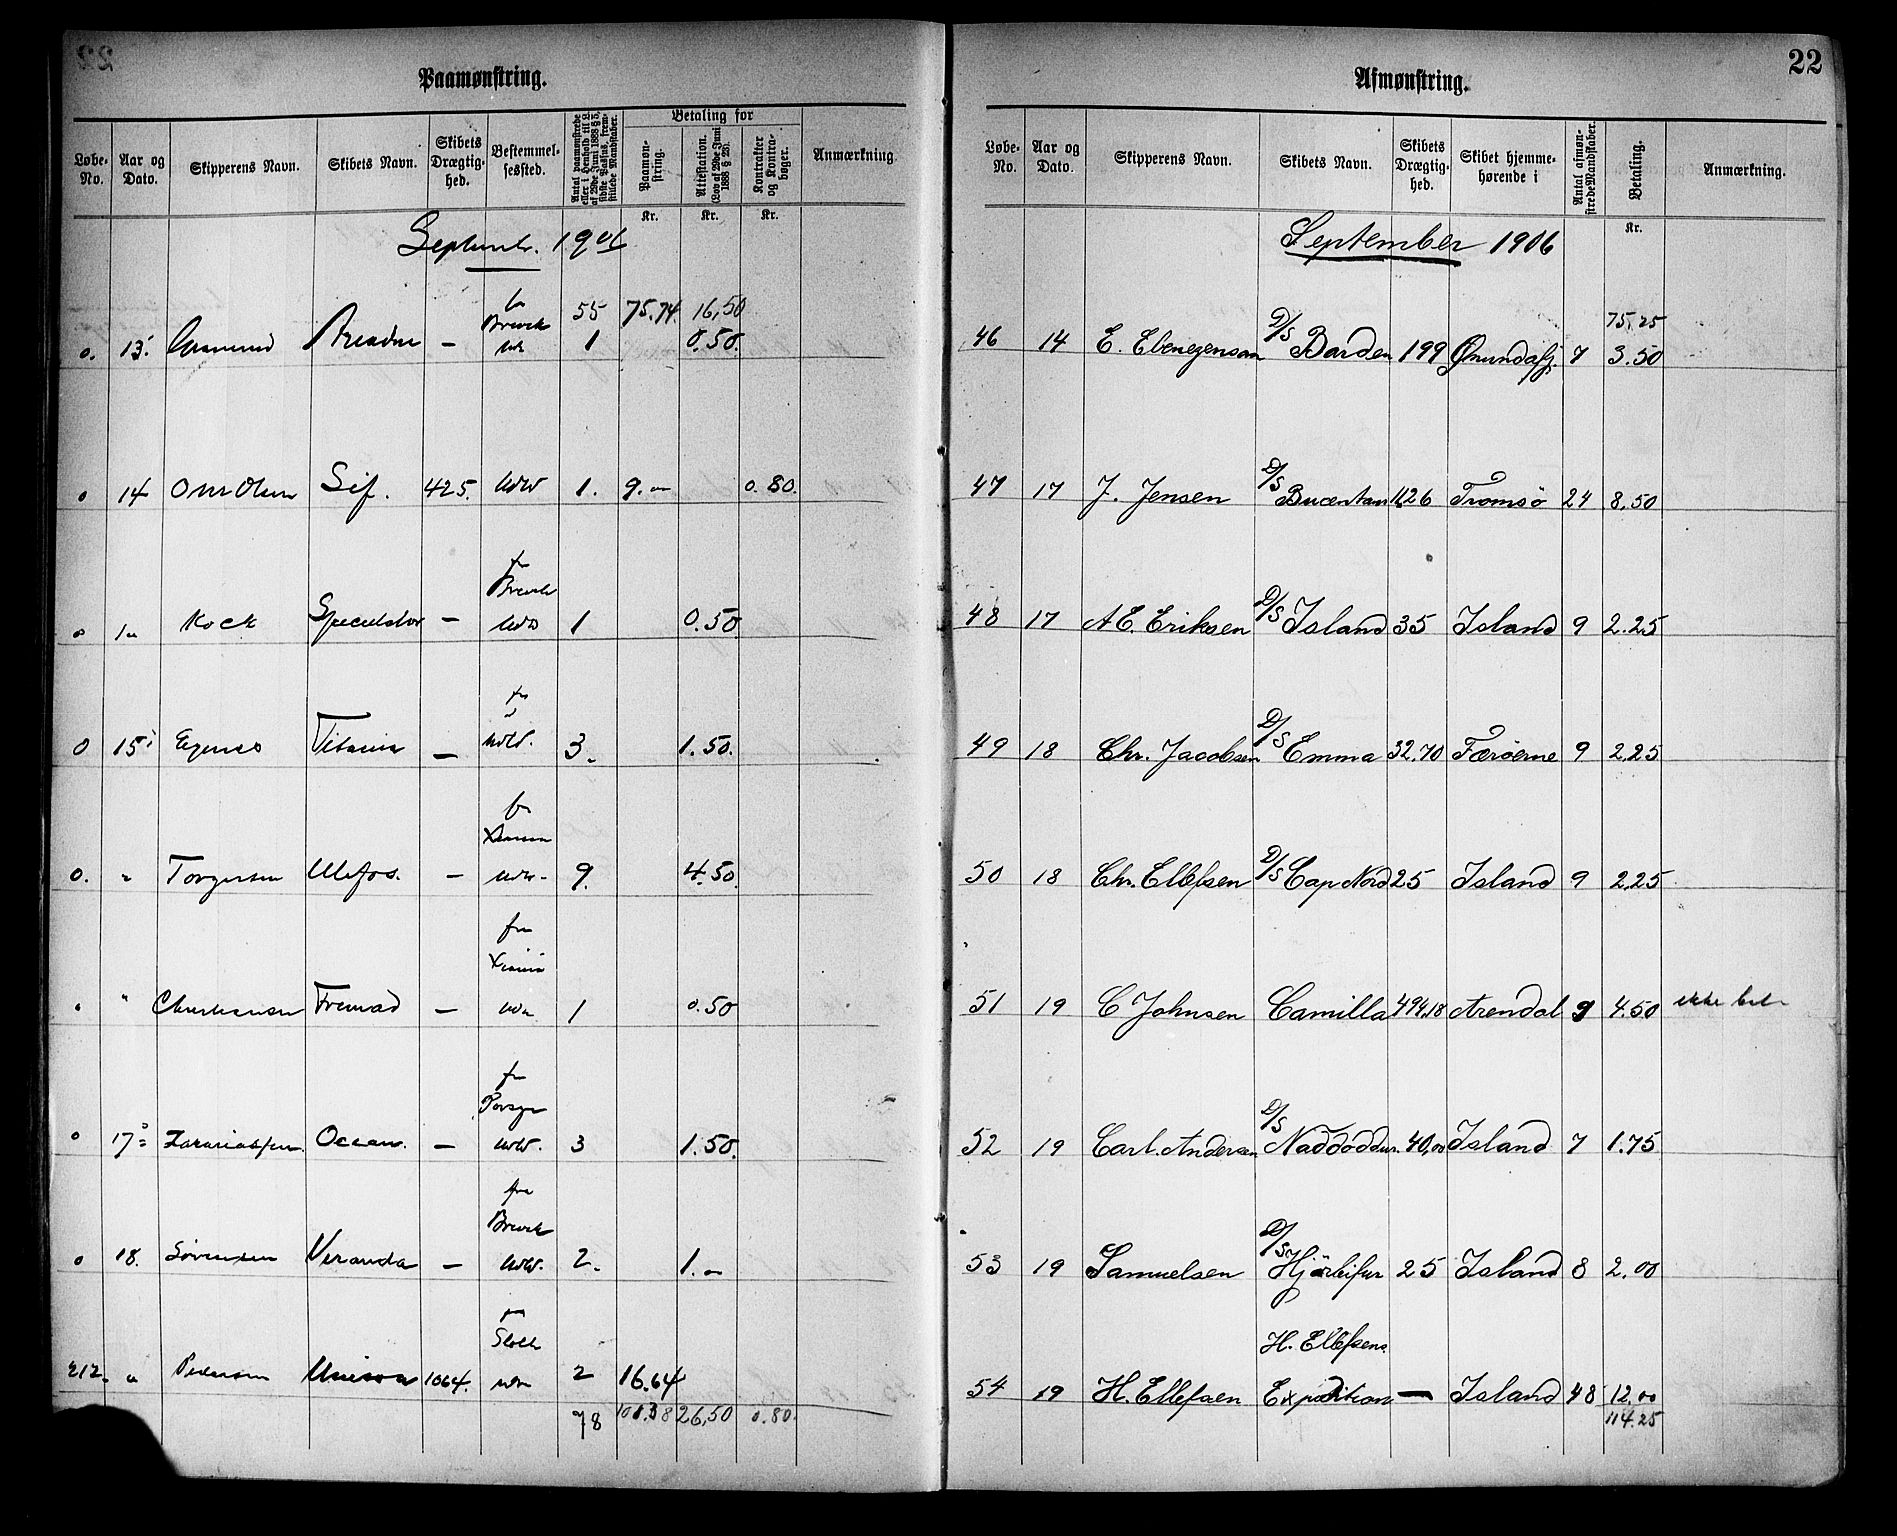 22
Paamønstring.
Løbe-No. Aar og Dato. Skipperens Navn. Skibets Navn. Skibets Drægtighed. Bestemmelsessted. Antal paamønstrede eller i Henhold til L. af 29de Juni 1888 § 5, sidste Passus, fremstillede Mandskaber. Betaling for Paamønstring. Attestation. (Lov af 29de Juni 1888 § 25). Kontrakter og Kontrabøger. Anmærkning.
Kr. Kr. Kr.
Septembr. 1906
55 75.74. 16,50
Brevik
0. 13. Ariadne — 1 0.50.
0 14 Om Olsen Sif. 425. Udld 1. 9.— 0.80.
fr Brevik
0 Kock Speculator — Udld 1 0.50
fr
0 15 Titania — Udld. 3. 1.50.
fr
0. " Torgersen Ulefos. — Udld. 9. 4.50.
fra Xiania
" Christiansen Fremad — Udld 1 0.50
fr Porsgr
0 17 Zakariassen. Ocean. — Udld. 3 1.50.
fra Brevik
0 18. Sørensen Veranda — Udld. 2. 1.—
212. " Pedersen 1064. 2 16.64
78 101.38 26,50 0.80.
22
Afmønstring.
Løbe-No. Aar og Dato. Skipperens Navn. Skibets Navn. Skibets Drægtighed. Skibet hjemmehørende i Antal afmønstrede Mandskaber. Betaling. Anmærkning.
Kr.
September 1906
75,25
46 14 E. Ebenezersan D/S Barden 199 Ønundafj. 7 3.50
47 17 J. Jensen D/S Bucentaur 1126 Tromsö 24 8.50
48 17 A E. Eriksen D/S Island 35 Island 9 2.25
49 18 Chr. Jacobsen D/S Emma 32.70 Færöerne 9 2.25
50 18 Chr. Ellefsen D/S Cap Nord 25 Island 9 2.25
51 19 C Johnsen Camilla 494,18 Arendal 9 4.50 ikke bet.
52 19 Carl. Andersen D/S Naddoddur. 40,00 Island 7 1.75
53 19 Samuelsen D/S Hjörleifur 25 Island 8 2.00
H. Ellefsens
54 19 H. Ellefsen Expedition — Island 48 12.00
114.25